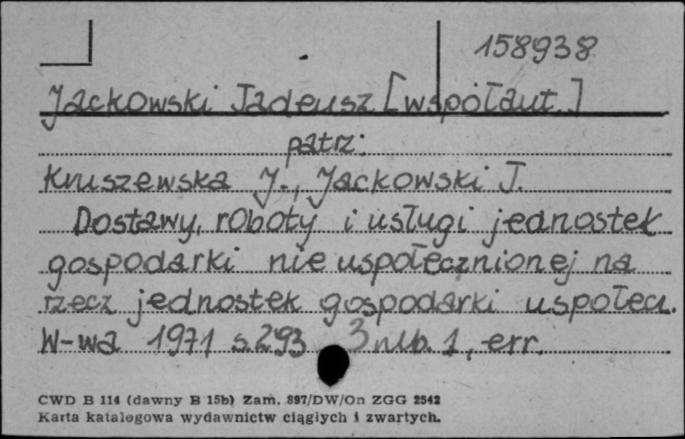 158938
Jackowski Tadeusz [współaut.]
patrz:
Kruszewska J., Jackowski T.
Dostawy, roboty i usługi jednostek
gospodarki nie uspołecznionej na
rzecz jednostek gospodarki uspołecz.
W-wa 1971 s.293 3 nlb. 1, err.
CWD B 114 (dawny B 15b) Zam. 897/DW/On ZGG 2542
Karta katalogowa wydawnictw ciągłych i zwartych.